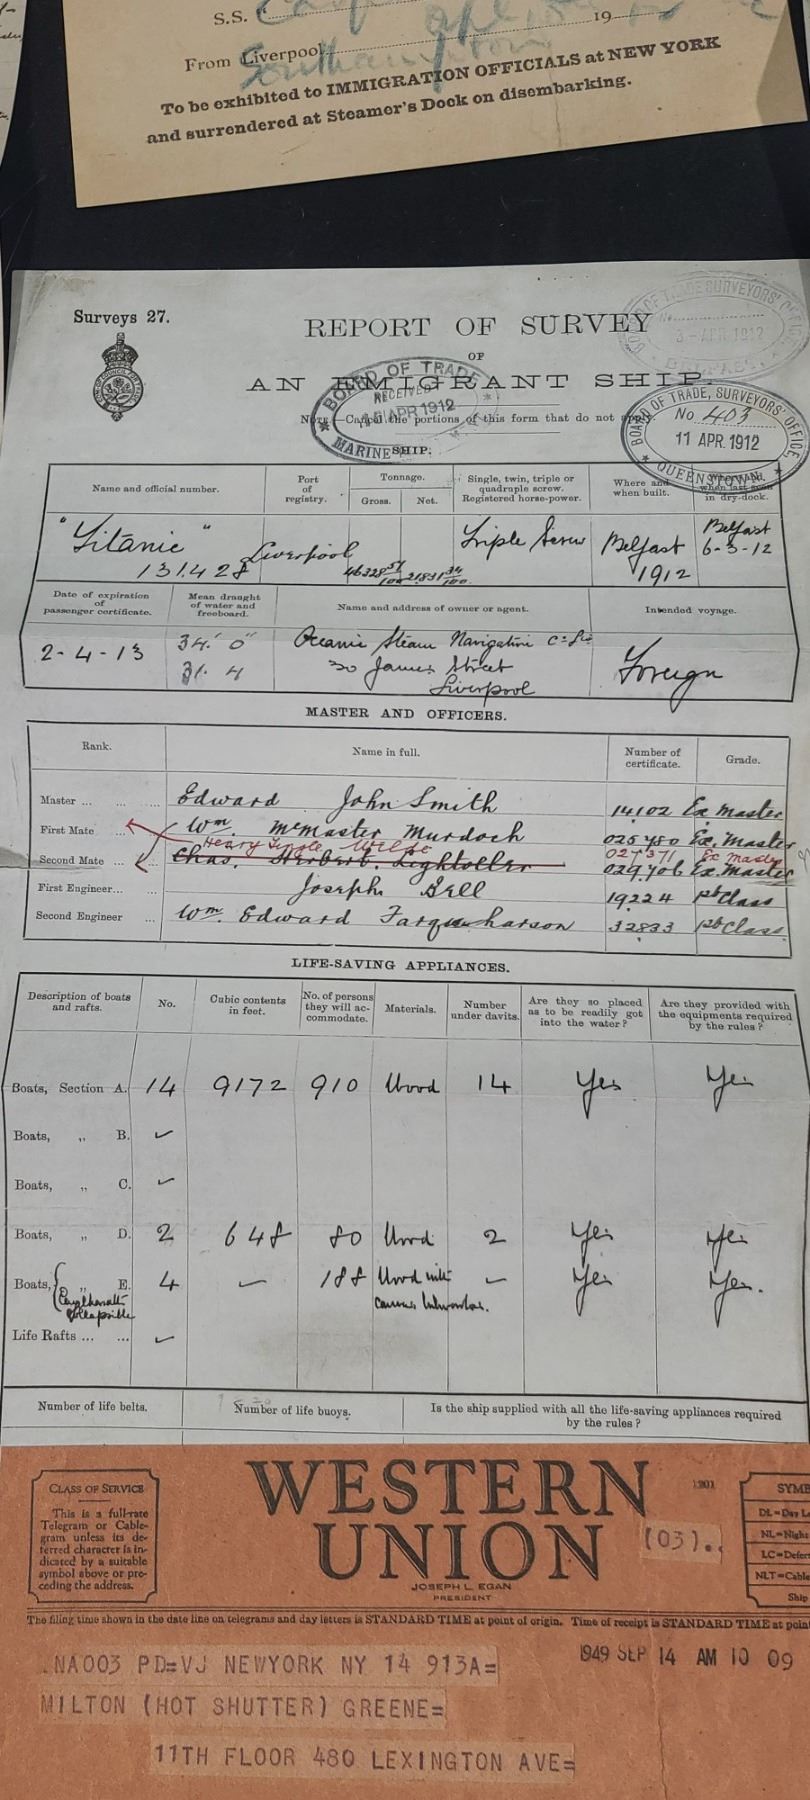 S.S. 19
From Liverpool
Southampton
To be exhibited to IMMIGRATION OFFICIALS at NEW YORK
and surrendered at Steamer's Dock on disembarking.
Surveys 27.
REPORT OF SURVEY
OF
AN EMIGRANT SHIP.
BOARD OF TRADE SURVEYORS' OFFICE
No.
3-APR.1912
BOARD OF TRADE
RECEIVED
APR 1912
MARINE
NOTE.—Cancel the portions of this form that do not apply.
BOARD OF TRADE, SURVEYORS' OFFICE
No 403
11 APR. 1912
QUEENSTOWN
SHIP.
Name and official number. Port of registry. Tonnage. Gross. Net. Single, twin, triple or quadruple screw. Registered horse-power. Where and when built. when last seen in dry-dock.
"Titanic" 131428 Liverpool 46328 57/100 21831 34/100 Triple Screw Belfast 1912 Belfast 6-3-12
Date of expiration of passenger certificate. Mean draught of water and freeboard. Name and address of owner or agent. Intended voyage.
2-4-13 34' 0" Oceanic Steam Navigation Co Ld Foreign
31. 4 30 James Street
Liverpool
MASTER AND OFFICERS.
Rank. Name in full. Number of certificate. Grade.
Master ... ... Edward John Smith 14102 Ex Master
First Mate ... Wm. McMaster Murdoch 025780 Ex. Master
Henry Tingle Wilde 027371 Ex Master
Second Mate ... Chas. Herbert Lightoller 029706 Ex. Master
First Engineer... ... Joseph Bell 19224 1st Class
Second Engineer ... Wm. Edward Farquharson 32833 1st Class
LIFE-SAVING APPLIANCES.
Description of boats and rafts. No. Cubic contents in feet. No. of persons they will accommodate. Materials. Number under davits. Are they so placed as to be readily got into the water? Are they provided with the equipments required by the rules?
Boats, Section A. 14 9172 910 Wood 14 Yes Yes
Boats, „ B. ✓
Boats, „ C. ✓
Boats, „ D. 2 648 80 Wood 2 Yes Yes
Boats, „ E. 4 – 188 Wood with – Yes Yes.
Englehardt Collapsible canvas bulwarks.
Life Rafts ... ... ✓
Number of life belts. Number of life buoys. Is the ship supplied with all the life-saving appliances required by the rules?
CLASS OF SERVICE
This is a full-rate
Telegram or Cable-
gram unless its de-
ferred character is in-
dicated by a suitable
symbol above or pre-
ceding the address.
WESTERN
UNION
1201
(03)..
JOSEPH L. EGAN
PRESIDENT
SYMB
DL=Day L
NL=Night
LC=Defer
NLT=Cable
Ship
The filing time shown in the date line on telegrams and day letters is STANDARD TIME at point of origin. Time of receipt is STANDARD TIME at poin
.NA003 PD=VJ NEWYORK NY 14 913A=
1949 SEP 14 AM 10 09
MILTON (HOT SHUTTER) GREENE=
11TH FLOOR 480 LEXINGTON AVE=